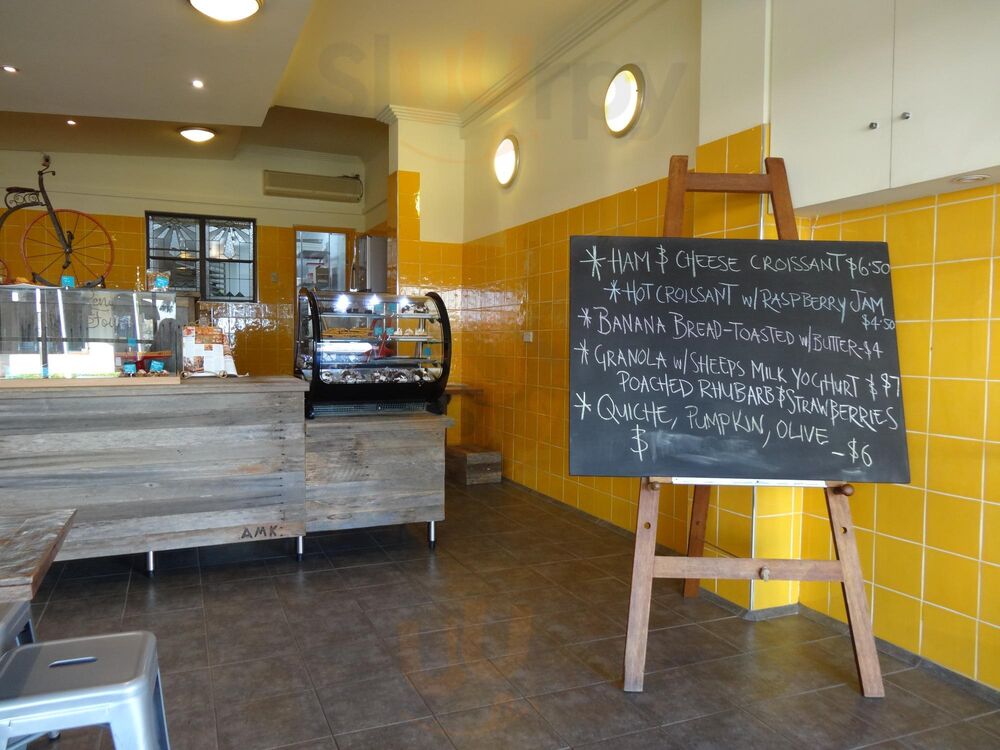 * HAM & CHEESE CROISSANT $6.50
* HOT CROISSANT W/RASPBERRY JAM
$4.50
* BANANA BREAD-TOASTED W/BUTTER-$4
* GRANOLA W/SHEEPS MILK YOGHURT & $7
POACHED RHUBARB & STRAWBERRIES
* QUICHE, PUMPKIN, OLIVE
$ - $6
AMK
slurpy